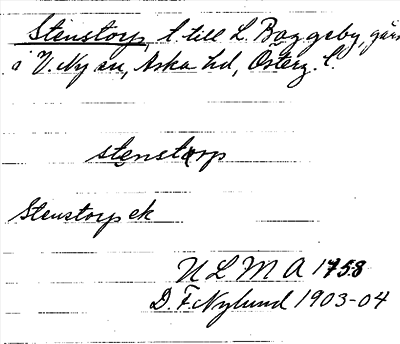 Stenstorp, t. till L. Baggeby, gård
i V. Ny sn, Aska hd, Österg. l.
stenstørp
Stenstorp ek
ULMA 1758
D. F. Nylund 1903-04